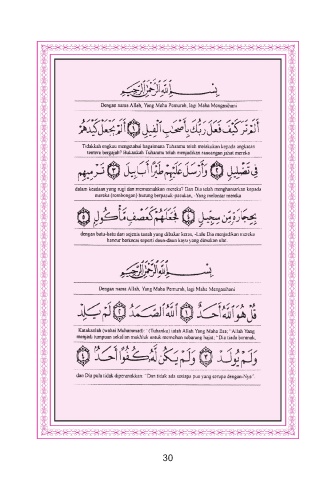 بِسْمِ اللَّهِ الرَّحْمَٰنِ الرَّحِيمِ
Dengan nama Allah, Yang Maha Pemurah, lagi Maha Mengasihani
أَلَمْ تَرَ كَيْفَ فَعَلَ رَبُّكَ بِأَصْحَابِ الْفِيلِ ١ أَلَمْ يَجْعَلْ كَيْدَهُمْ
Tidakkah engkau mengetahui bagaimana Tuhanmu telah melakukan kepada angkatan
tentera bergajah? Bukankah Tuhanmu telah menjadikan rancangan jahat mereka
فِي تَضْلِيلٍ ٢ وَأَرْسَلَ عَلَيْهِمْ طَيْرًا أَبَابِيلَ ٣ تَرْمِيهِم
dalam keadaan yang rugi dan memusnahkan mereka? Dan Dia telah menghantarkan kepada
mereka (rombongan) burung berpasuk-pasukan, Yang melontar mereka
بِحِجَارَةٍ مِّن سِجِّيلٍ ٤ فَجَعَلَهُمْ كَعَصْفٍ مَّأْكُولٍ ٥
dengan batu-batu dari sejenis tanah yang dibakar keras, -Lalu Dia menjadikan mereka
hancur berkecai seperti daun-daun kayu yang dimakan ulat.
بِسْمِ اللَّهِ الرَّحْمَٰنِ الرَّحِيمِ
Dengan nama Allah, Yang Maha Pemurah, lagi Maha Mengasihani
قُلْ هُوَ اللَّهُ أَحَدٌ ١ اللَّهُ الصَّمَدُ ٢ لَمْ يَلِدْ
Katakanlah (wahai Muhammad): "(Tuhanku) ialah Allah Yang Maha Esa; "Allah Yang
menjadi tumpuan sekalian makhluk untuk memohon sebarang hajat; "Dia tiada beranak,
وَلَمْ يُولَدْ ٣ وَلَمْ يَكُن لَّهُ كُفُوًا أَحَدٌ ٤
dan Dia pula tidak diperanakkan; "Dan tidak ada sesiapa pun yang serupa denganNya".
30